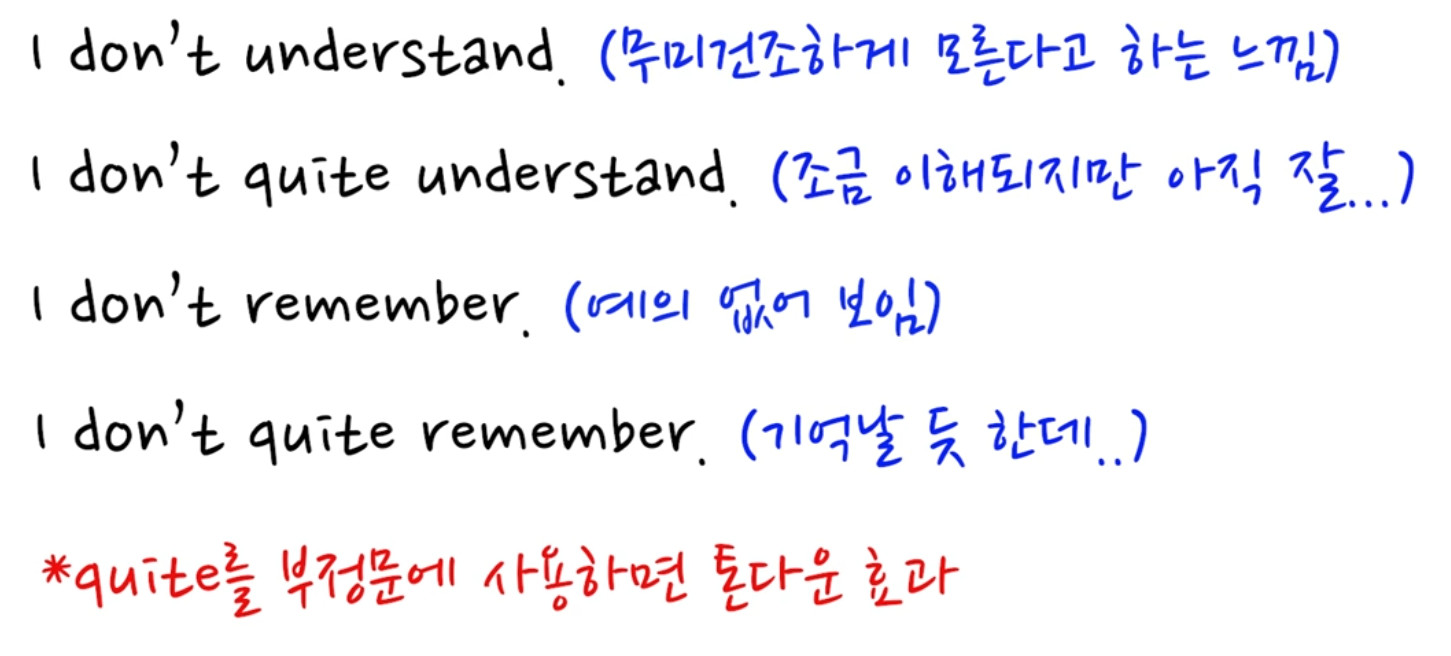 I don't understand. (무미건조하게 모른다고 하는 느낌)
I don't quite understand. (조금 이해되지만 아직 잘...)
I don't remember. (예의 없어 보임)
I don't quite remember. (기억날 듯 한데..)
*quite를 부정문에 사용하면 톤다운 효과